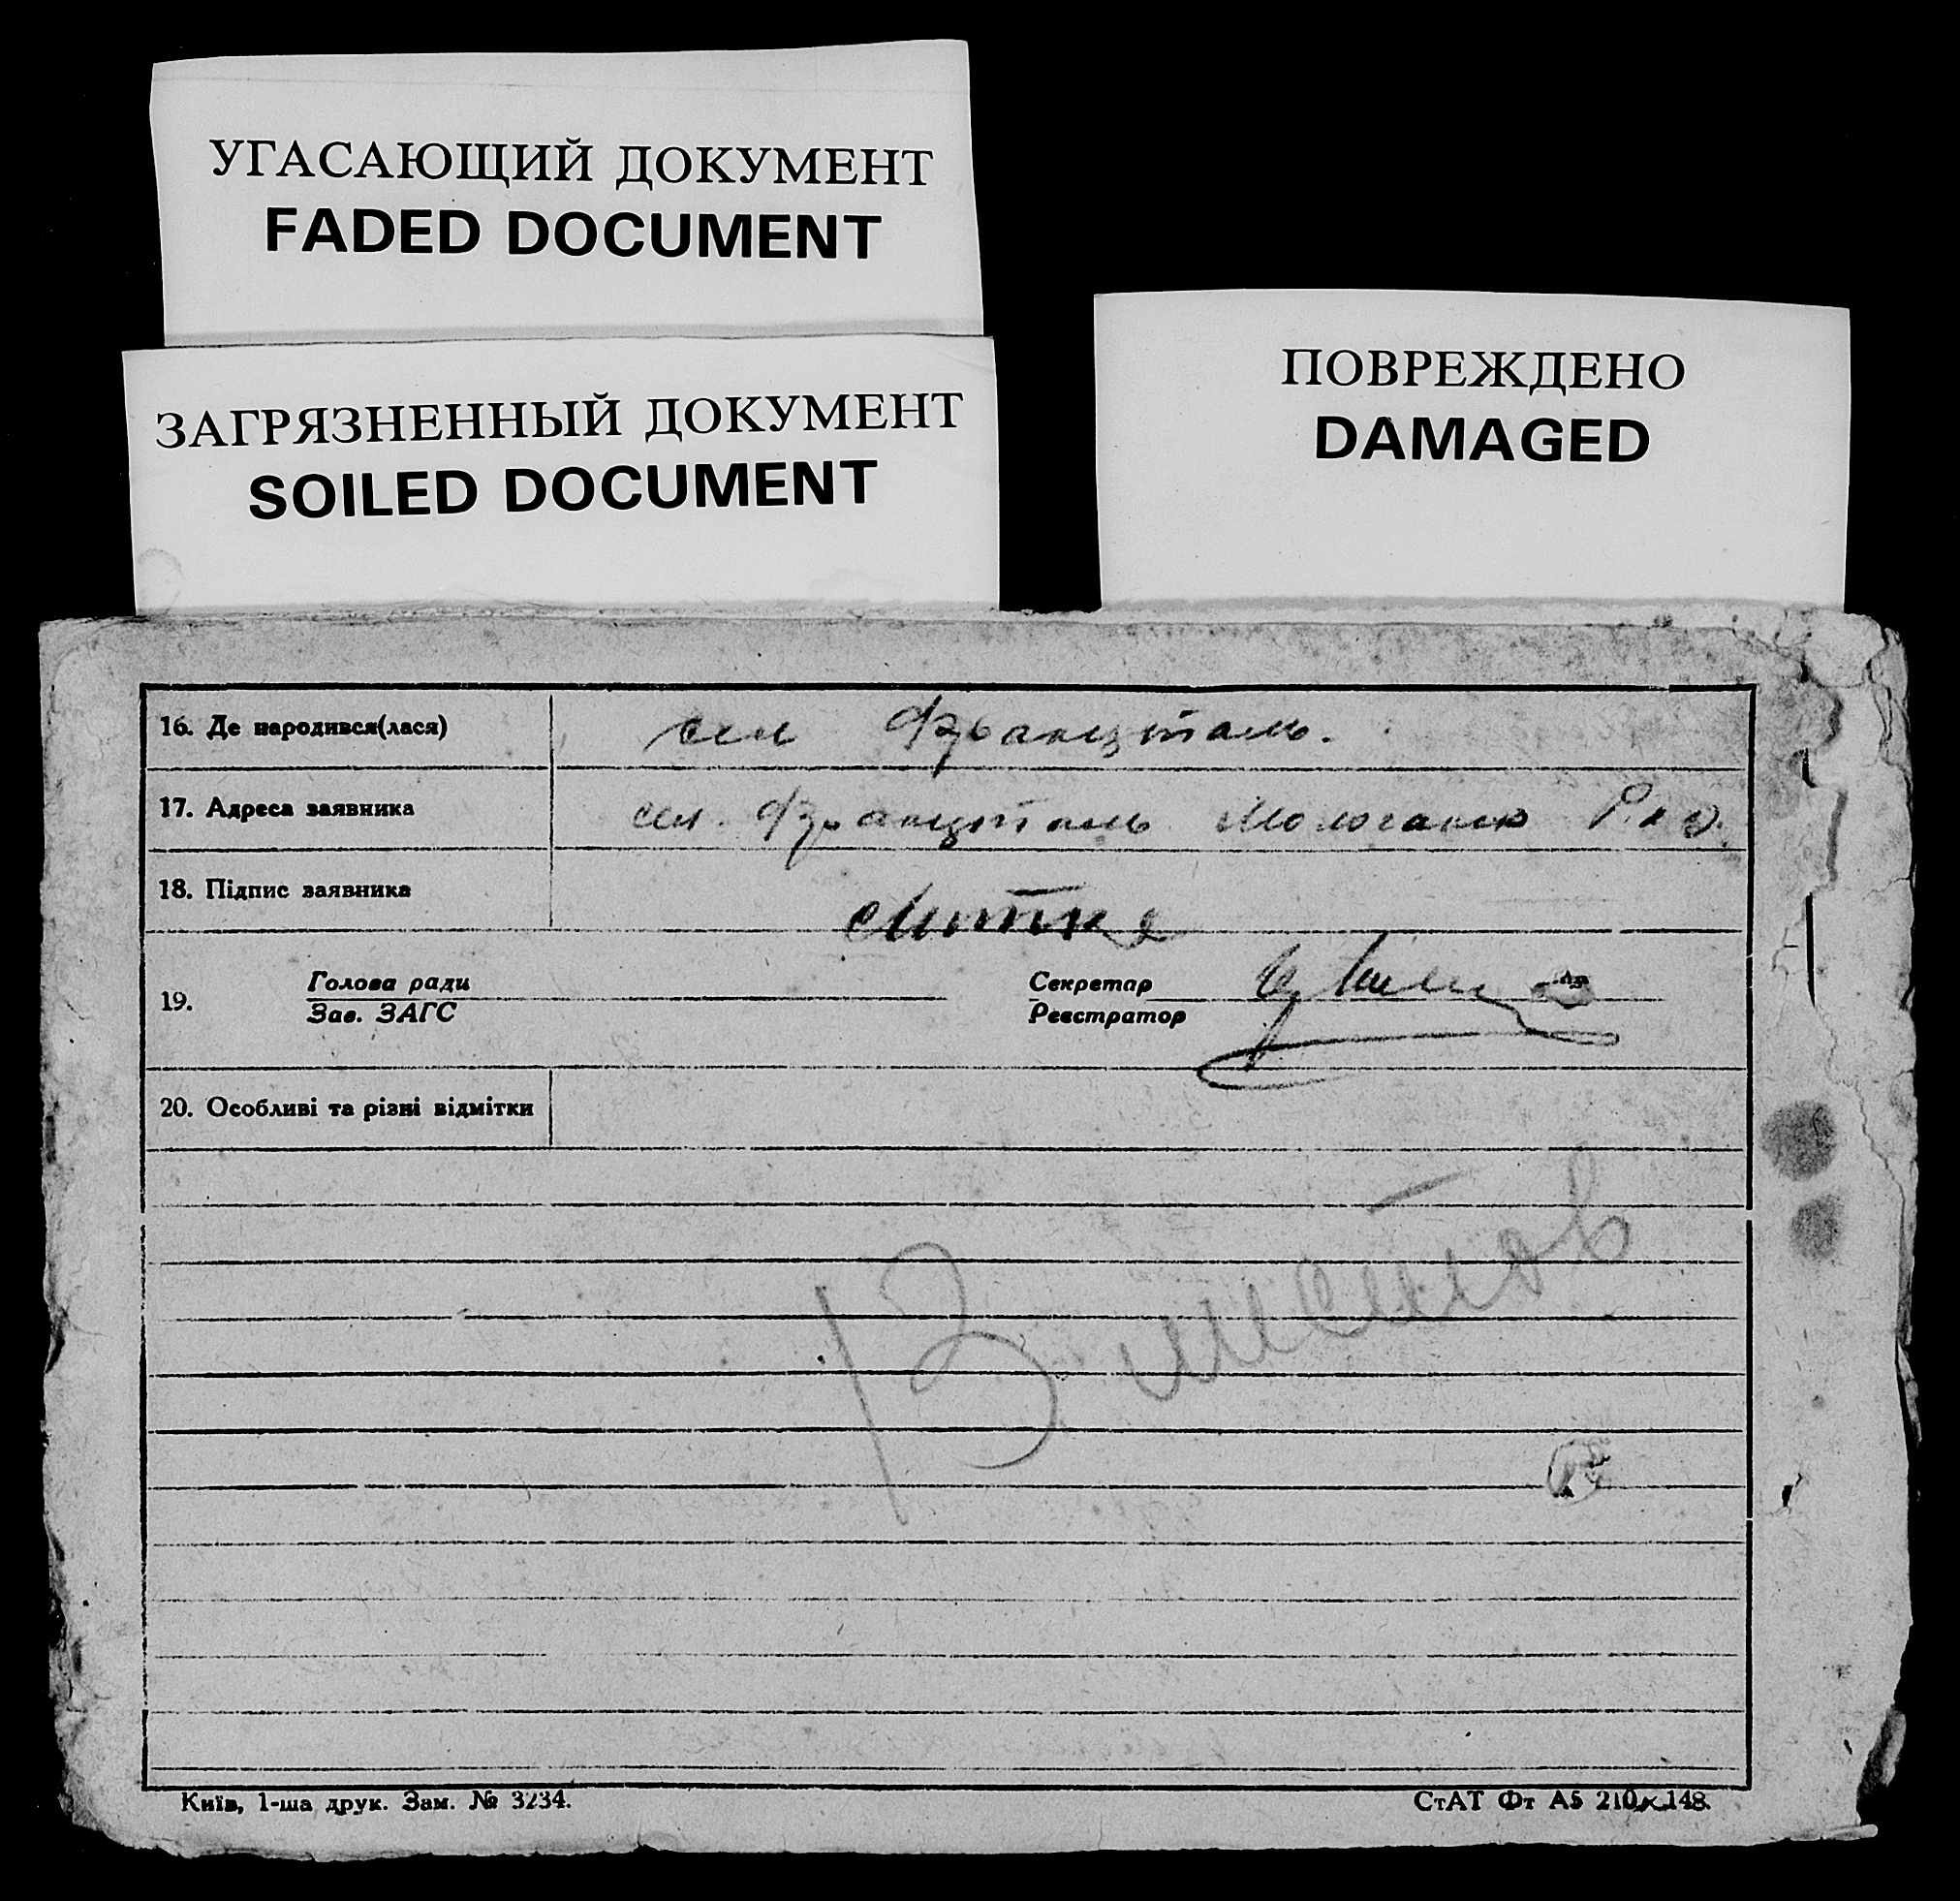 УГАСАЮЩИЙ ДОКУМЕНТ
FADED DOCUMENT
ЗАГРЯЗНЕННЫЙ ДОКУМЕНТ
SOILED DOCUMENT
ПОВРЕЖДЕНО
DAMAGED
16. Де народився(лася) сел Французталь.
17. Адреса заявника сел. Французталь
18. Підпис заявника
19. Голова ради Секретар
Зав. ЗАГС Реєстратор
20. Особливі та різні відмітки
Київ, 1-ша друк. Зам. № 3234.
СтАТ Фт А5 210×148.